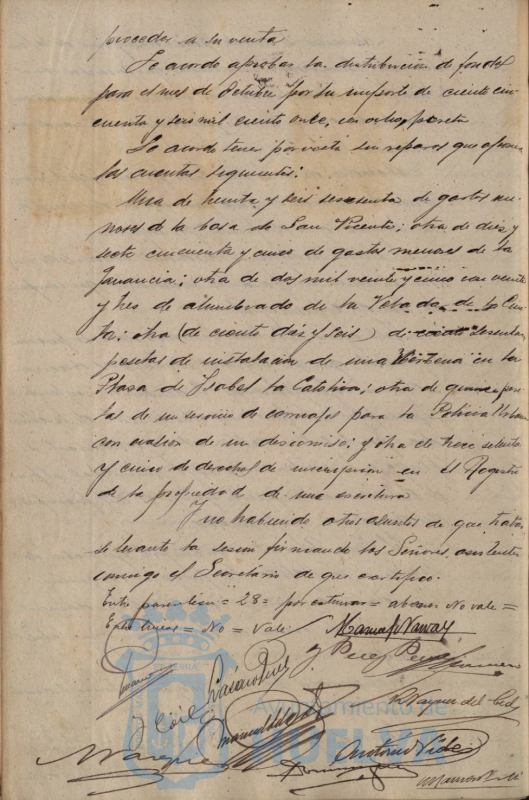 proceder a su venta
Se acordó aprobar la distribución de fondos
para el mes de Octubre por su importe de ciento cin-
cuenta y seis mil ciento once, con ocho, peseta
Se acordó tener por vista sin reparos que oponer
las cuentas siguientes:
Una de treinta y seis sesenta de gastos me-
nores de la Casa de San Vicente; otra de diez y
siete cincuenta y cinco de gastos menores de la
Infancia; otra de dos mil veinte y cinco con veinte
y tres de alumbrado de la Velada de la Cin-
ta; otra (de ciento diez y seis) de
pesetas de instalación de una en la
Plaza de Isabel la Católica; otra de quince pese-
tas de un servicio de carruajes para la Policía Urbana
con ocasión de un decomiso; y otra de trece setenta
y cinco de derechos de inscripción en el Registro
de la propiedad de una escritura
Y no habiendo otros asuntos de que tratar
se levantó la sesión firmando los Señores asistentes
conmigo el Secretario de que certifico.
Entre parentesis = 28 = por = No vale =
Entre lineas = No = Vale
J. Perez
Antonio
Ayuntamiento de
HUELVA